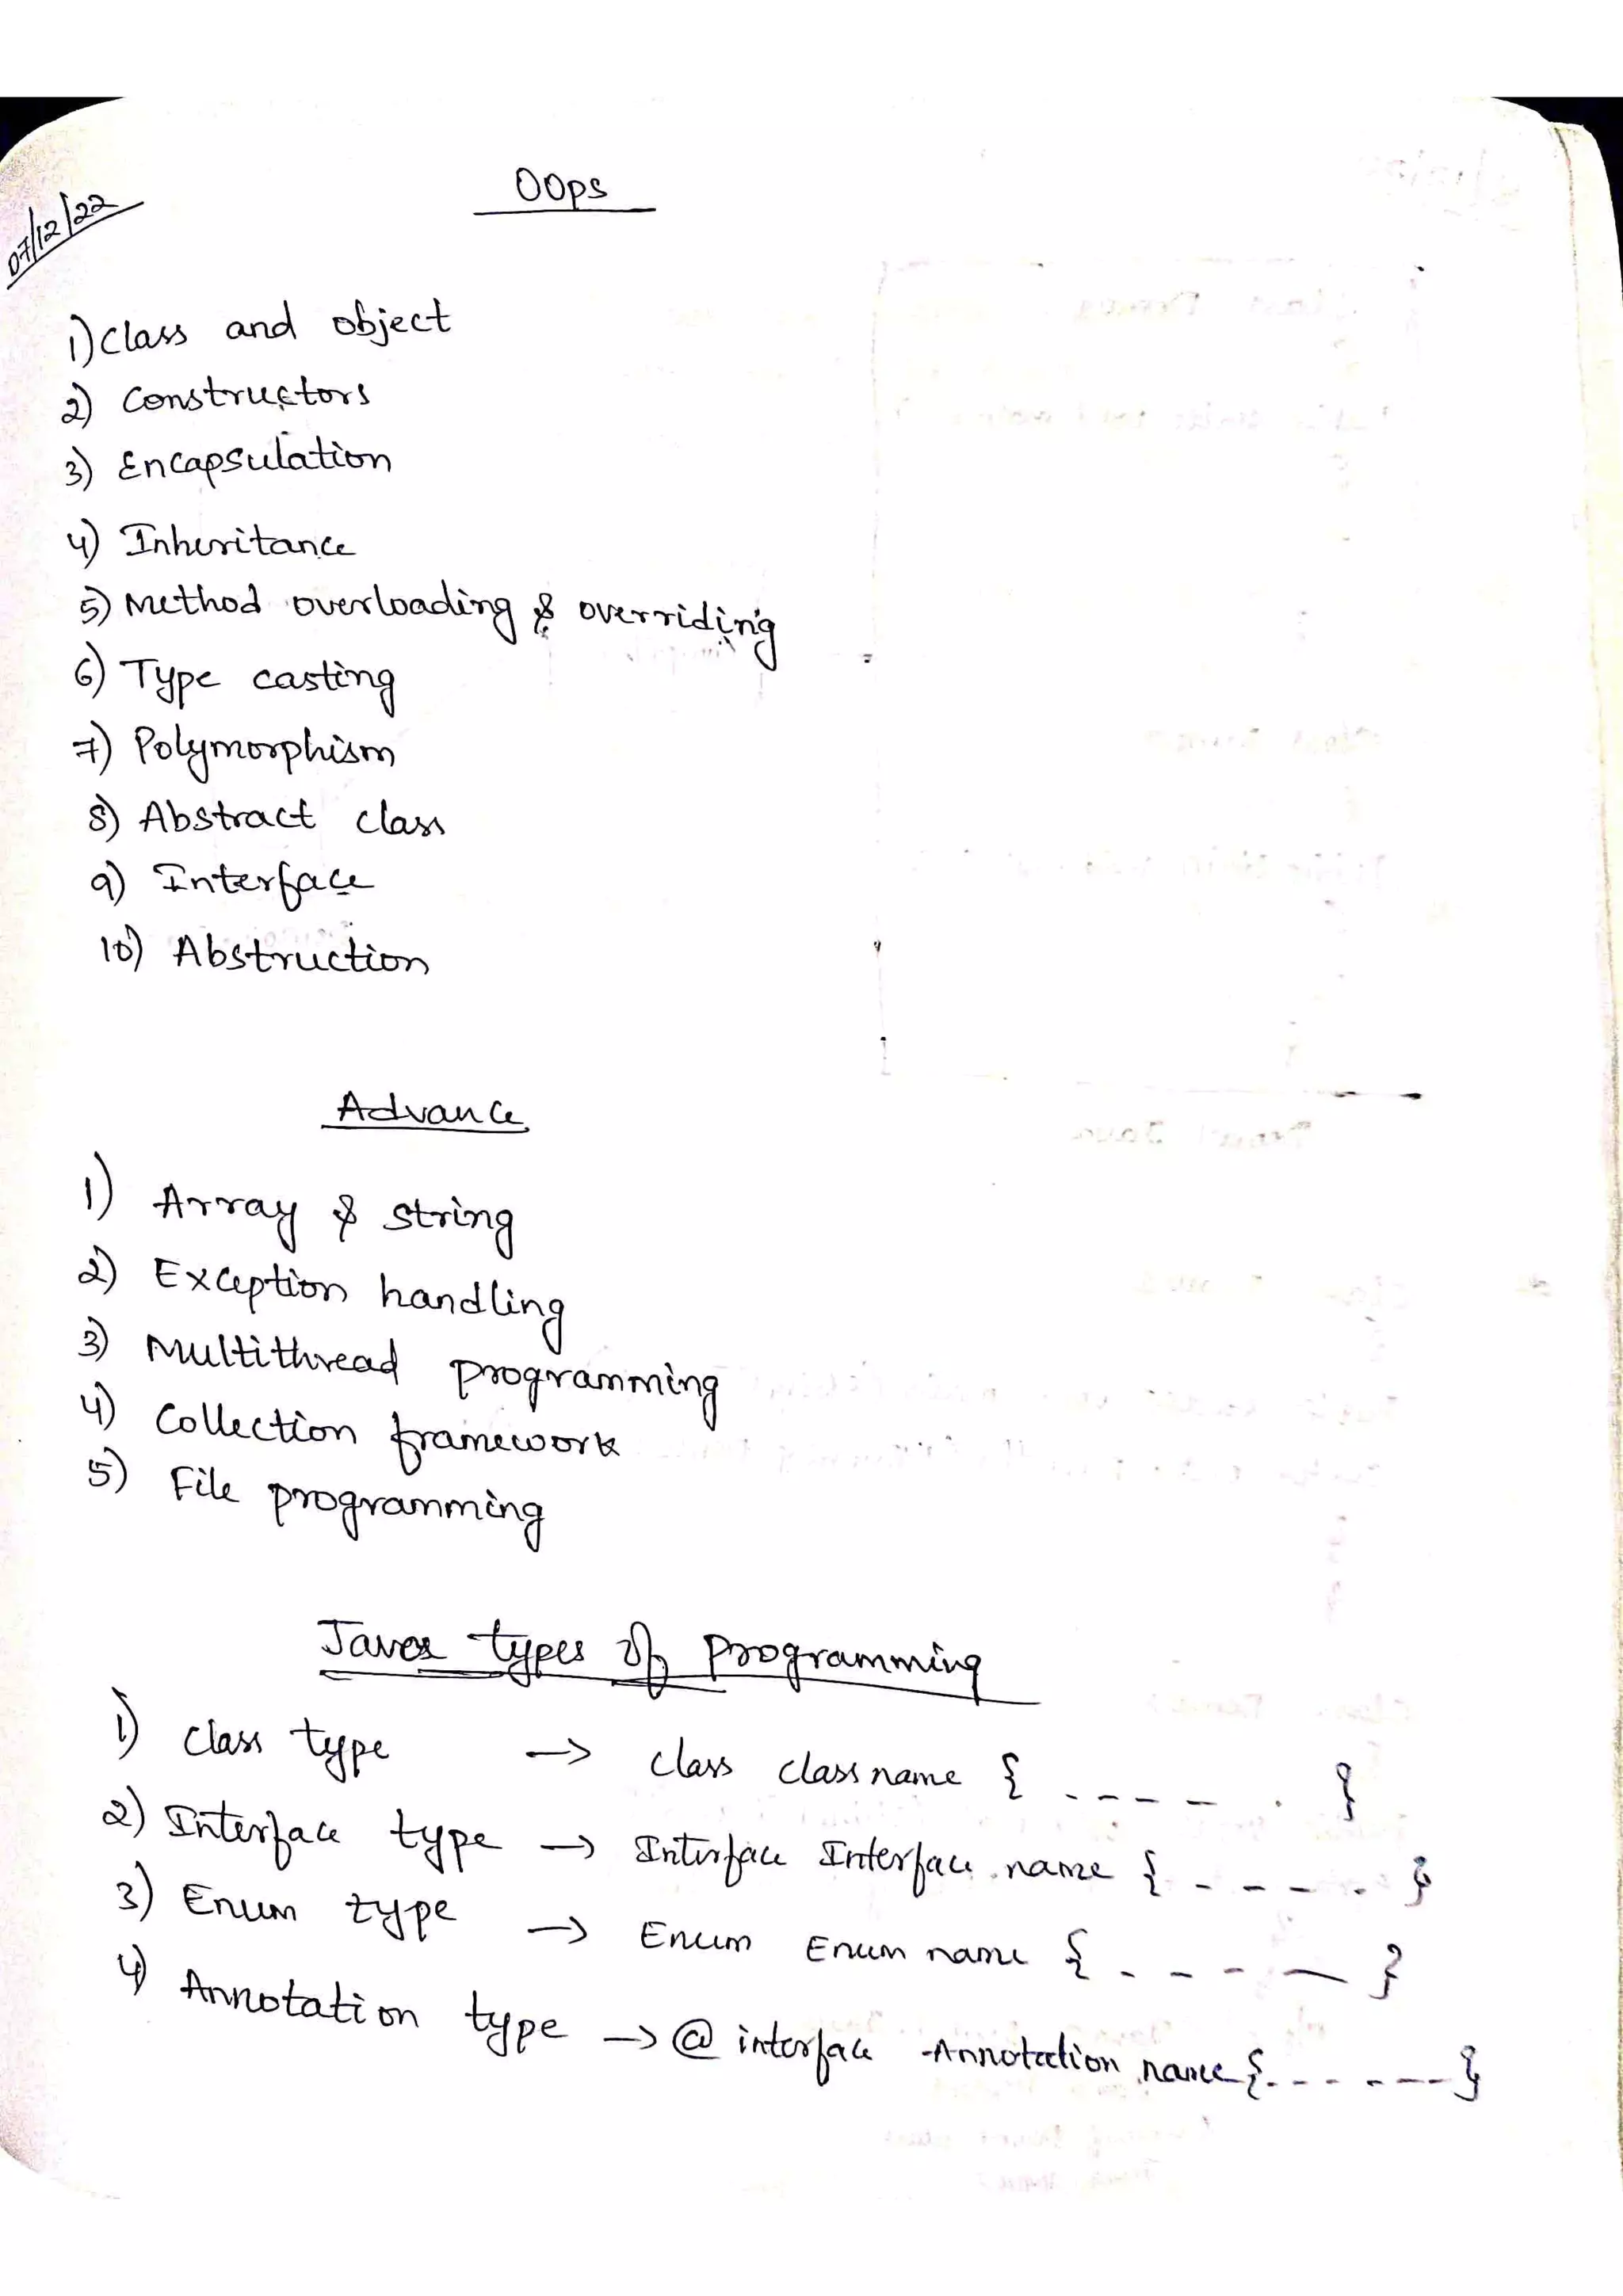 07/12/22
OOps
1) Class and object
2) Constructors
3) Encapsulation
4) Inheritance
5) Method overloading & overriding
6) Type casting
7) Polymorphism
8) Abstract class
9) Interface
10) Abstruction
Advance
1) Array & string
2) Exception handling
3) Multithread programming
4) Collection framework
5) File programming
Java types of programming
1) class type → class classname { - - - - . }
2) Interface type → Interface Interface name { - - - - }
3) Enum type → Enum Enum name { - - - - }
4) Annotation type → @ interface Annotation name { - - - - - - }